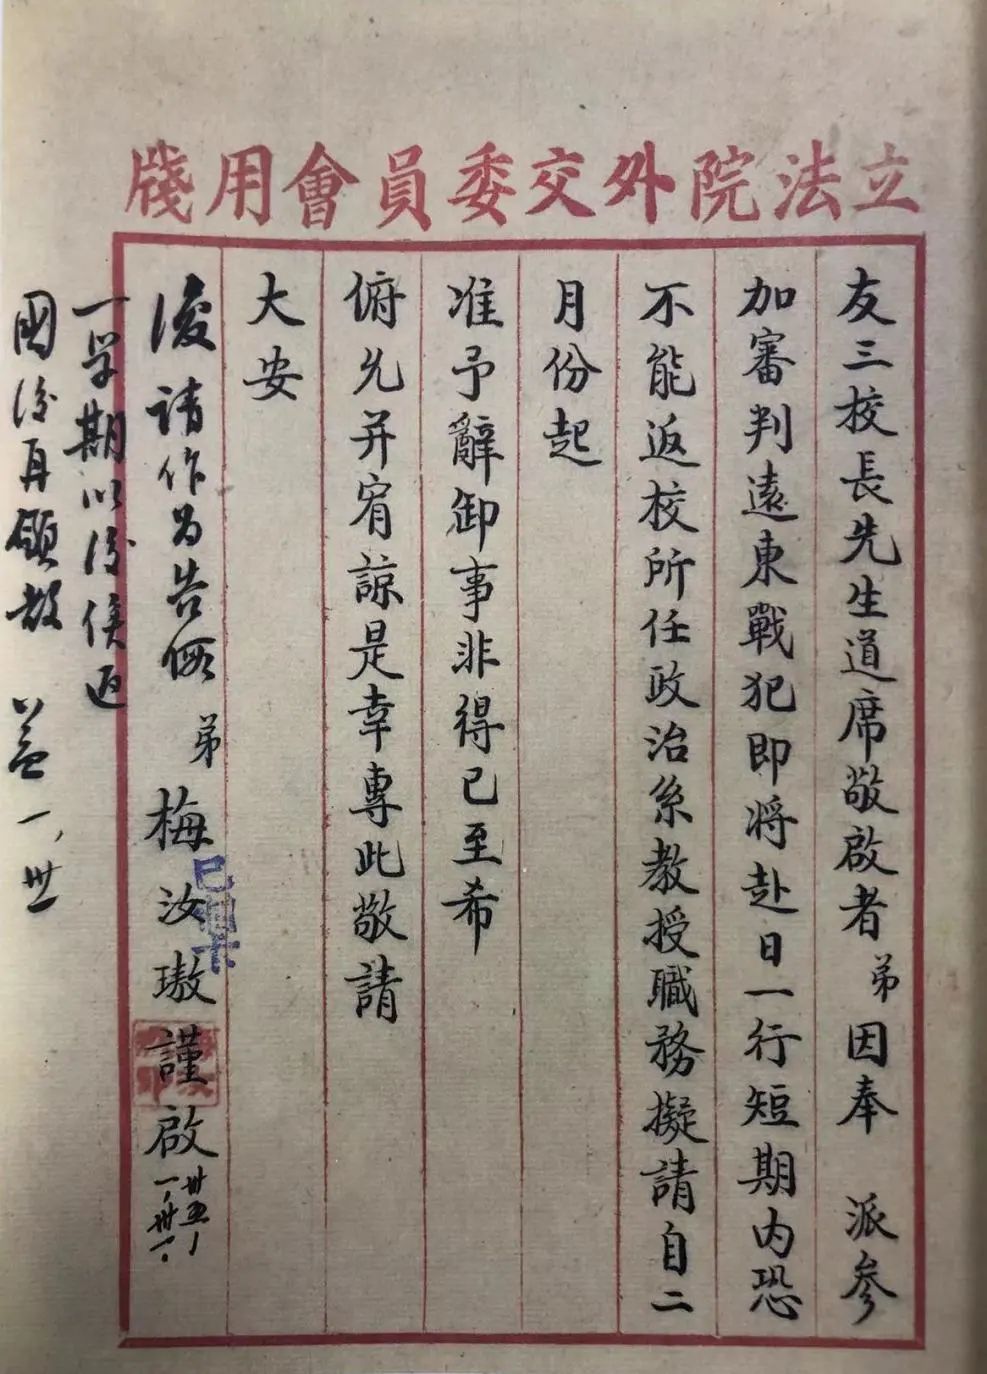 立法院外交委員會用牋
友三校長先生道席敬啟者弟因奉 派參
加審判遠東戰犯即將赴日一行短期内恐
不能返校所任政治系教授職務擬請自二
月份起
准予辭卸事非得已至希
俯允并宥諒是幸專此敬請
大安
弟 梅汝璈謹啟 卅五、一、卅一.
復請作为告假
一学期以後俟返
國後再領教 益 一,卅